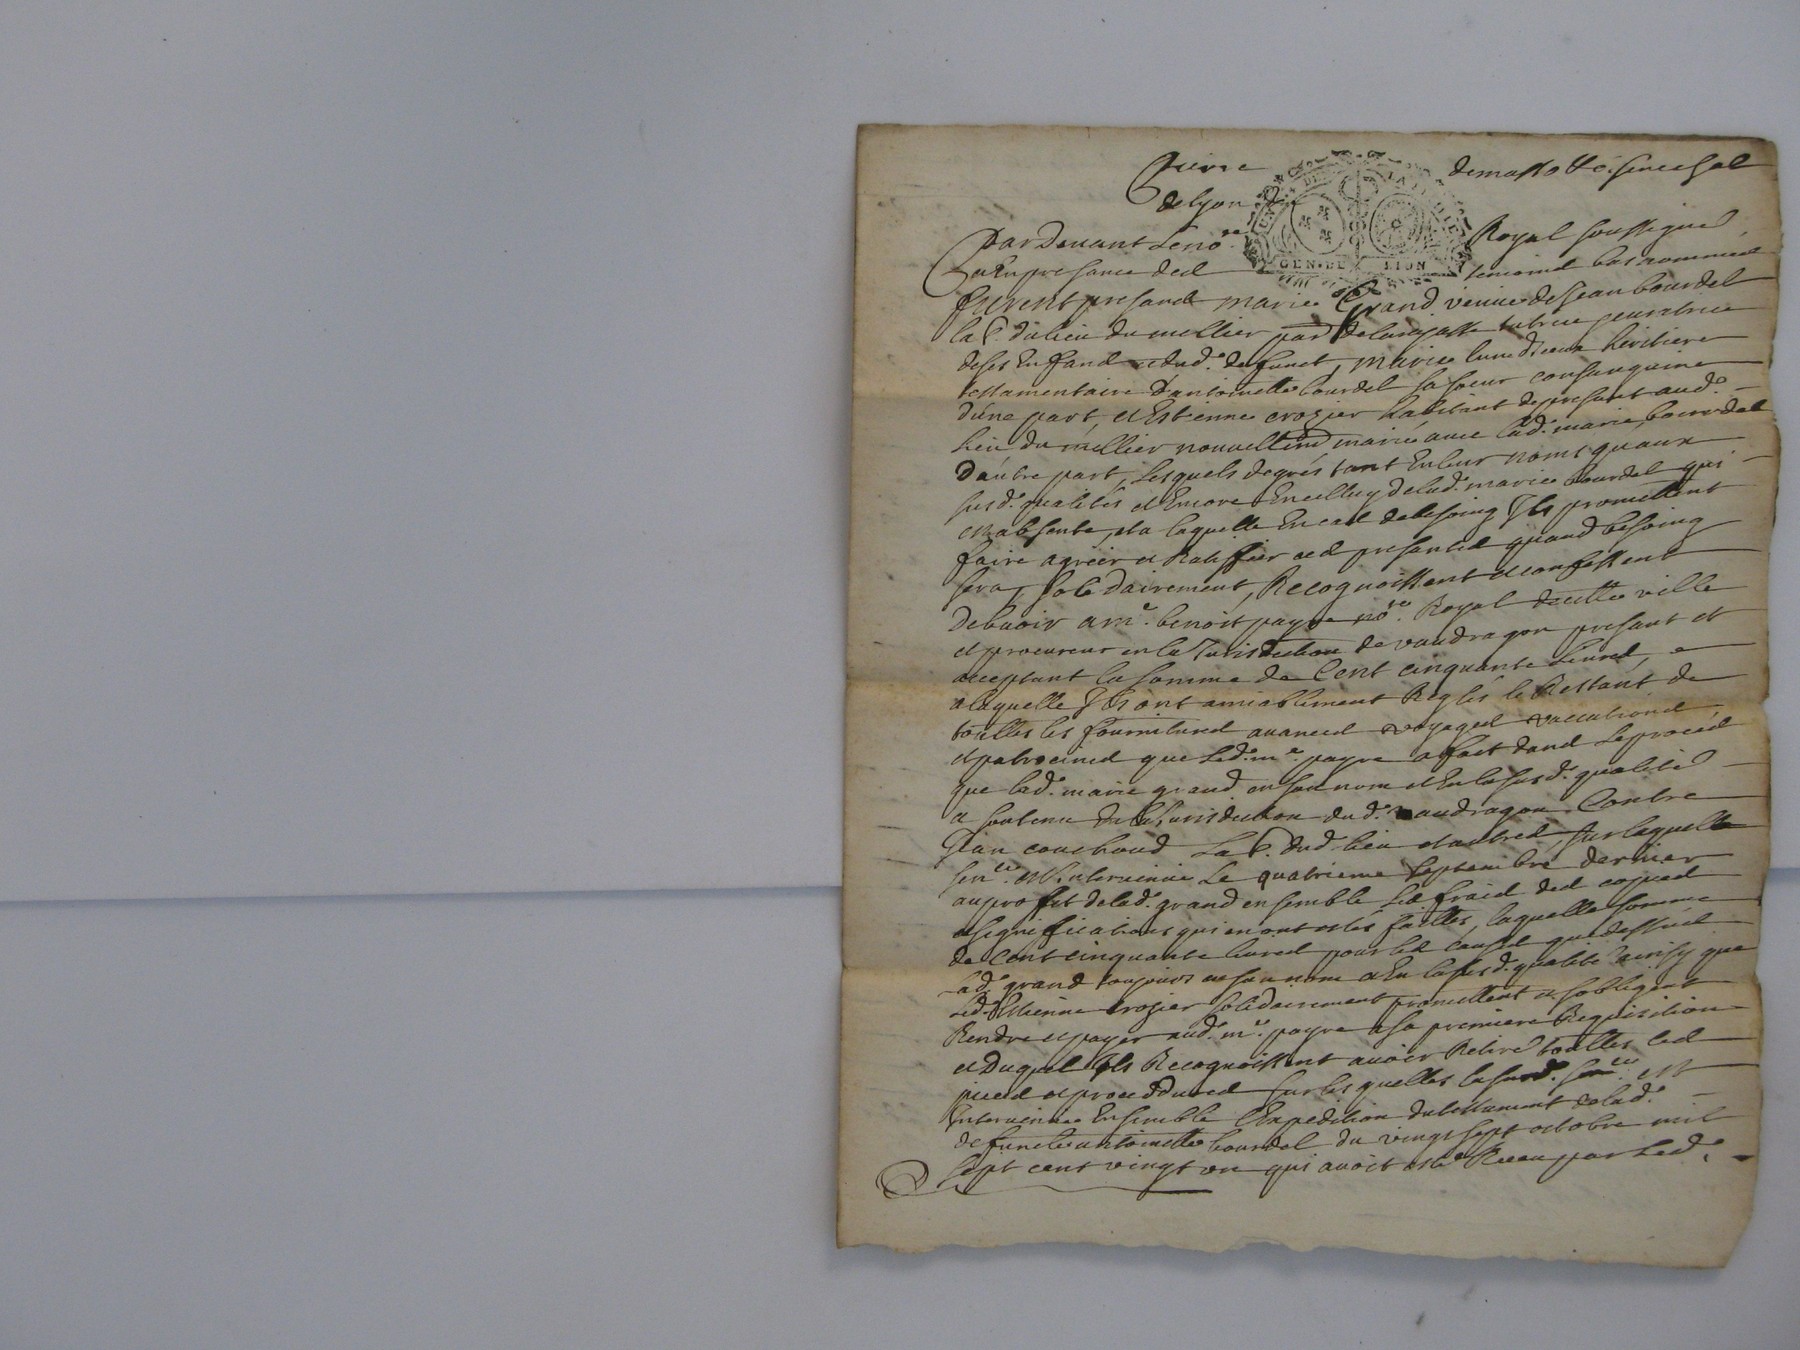 de masso sénéchal
de lyon
GEN. DE LION
Par Devant Le no.re Royal soussigné
et En presance des temoins bas nommes
furent presans marie Grand veuve de Jean bourdel
la.r du lieu du mellier par. de larajasse tutrice curatrice
de ses Enfans et dud. defunct, marie lune d'iceux heritiere
testamentaire D'antoinette bourdel sa soeur consanguine
d'une part, et Estienne crozier habitant de presant aud.
lieu du mellier nouvellem.t marié avec lad. marie bourdel
D'autre part, Lesquels de gres tant En leur noms quaux
susd. qualités et Encore En celluy de lad. marie bourdel qui
est absente, et a laquelle En cas de besoing Ils promettent
faire agreer et Ratiffier ces presantes quand besoing
sera, solidairement, Recognoissent et confessent
Debvoir a m.e benoist payre no.re Royal de cette ville
et procureur en la Jurisdiction de vaudragon presant et
acceptant la somme de Cent cinquante Livres,
a laquelle Ils ont amiablement Reglés le Restant de
touttes les fournitures avances voyages vaccations
et patrocines que Led. m.e payre a fait dans Le procès
que lad. marie grand en son nom et En la susd. qualité
a soutenu En la Jurisdiction dud. vaudragon Contre
Jean couchoud La.r dud. lieu et autres, sur laquelle
sen.ce est Intervenue Le quatrieme septembre dernier
au profit de lad. grand ensemble Les frais des copies
et significations qui en ont estés faittes, laquelle somme
de Cent cinquante livres pour les causes que dessus
lad. grand toujours en son nom et En la susd. qualité ainsy que
led. Estienne crozier solidairement promettent et s'obligent
Rendre et payer aud. m.e payre a sa premiere Requisition
et Duquel Ils Recognoissent avoir Retiré touttes les
pieces et procedures sur lesquelles la susd. sen.ce est
Intervenue Ensemble L'Expedition du testament de lad.
defuncte antoinette bourdel du vingt sept octobre mil
sept cent vingt un qui avoit esté Receu par Led.